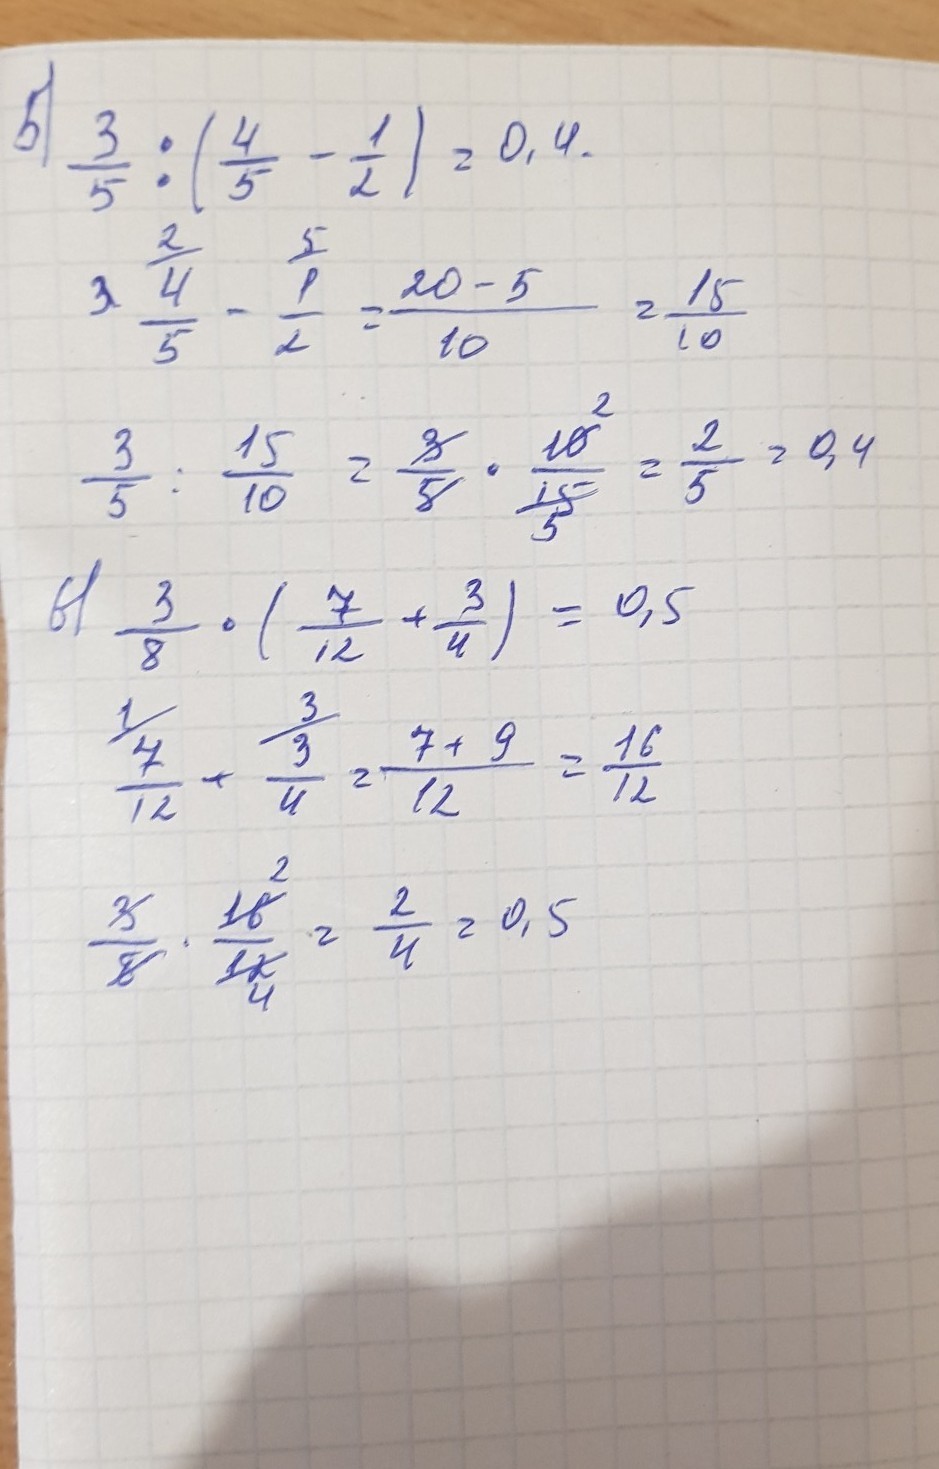 б) 3/5 : (4/5 - 1/2) = 0,4.
4/5 (2 - 1/2 (5 = 20 - 5/10 = 15/10
3/5 : 15/10 = 3/5 · 10 2/15 5 = 2/5 = 0,4
в) 3/8 · (7/12 + 3/4) = 0,5
1/ 7/12 + 3/ 3/4 = 7 + 9/12 = 16/12
3/8 · 16 2/12 4 = 2/4 = 0,5